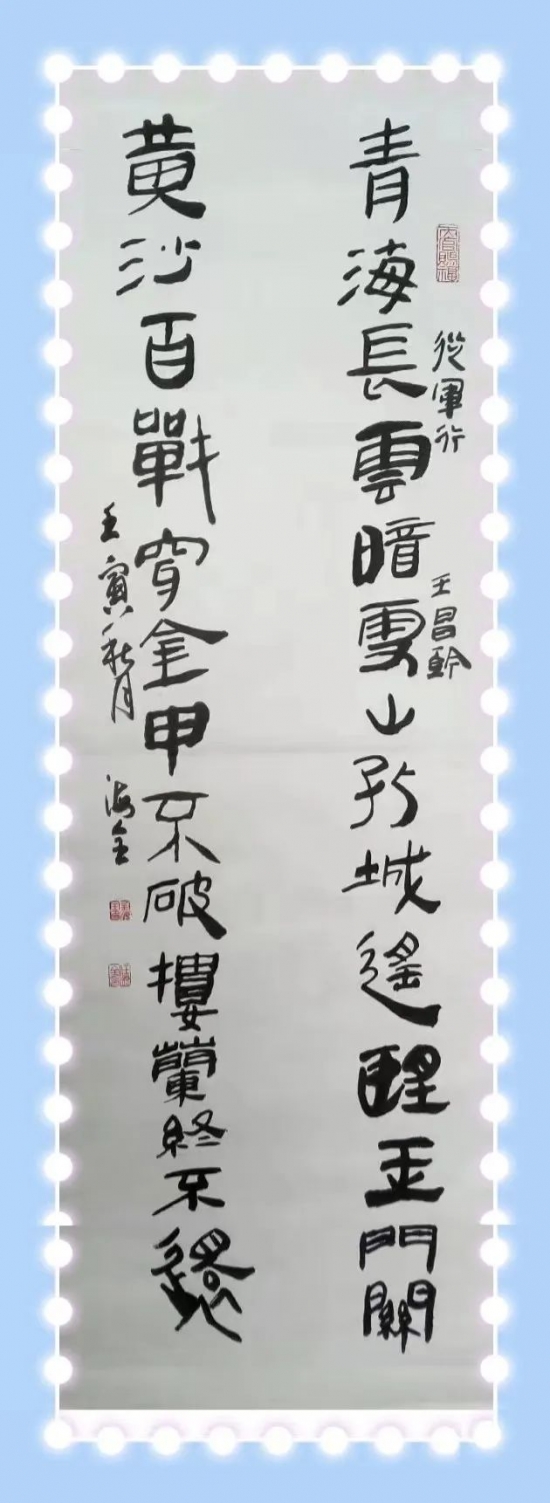 天官賜福
從軍行 王昌齡
青海長雲暗雪山孤城遙朢玉門關
黄沙百戰穿金甲不破樓蘭終不還
壬寅秋月 海